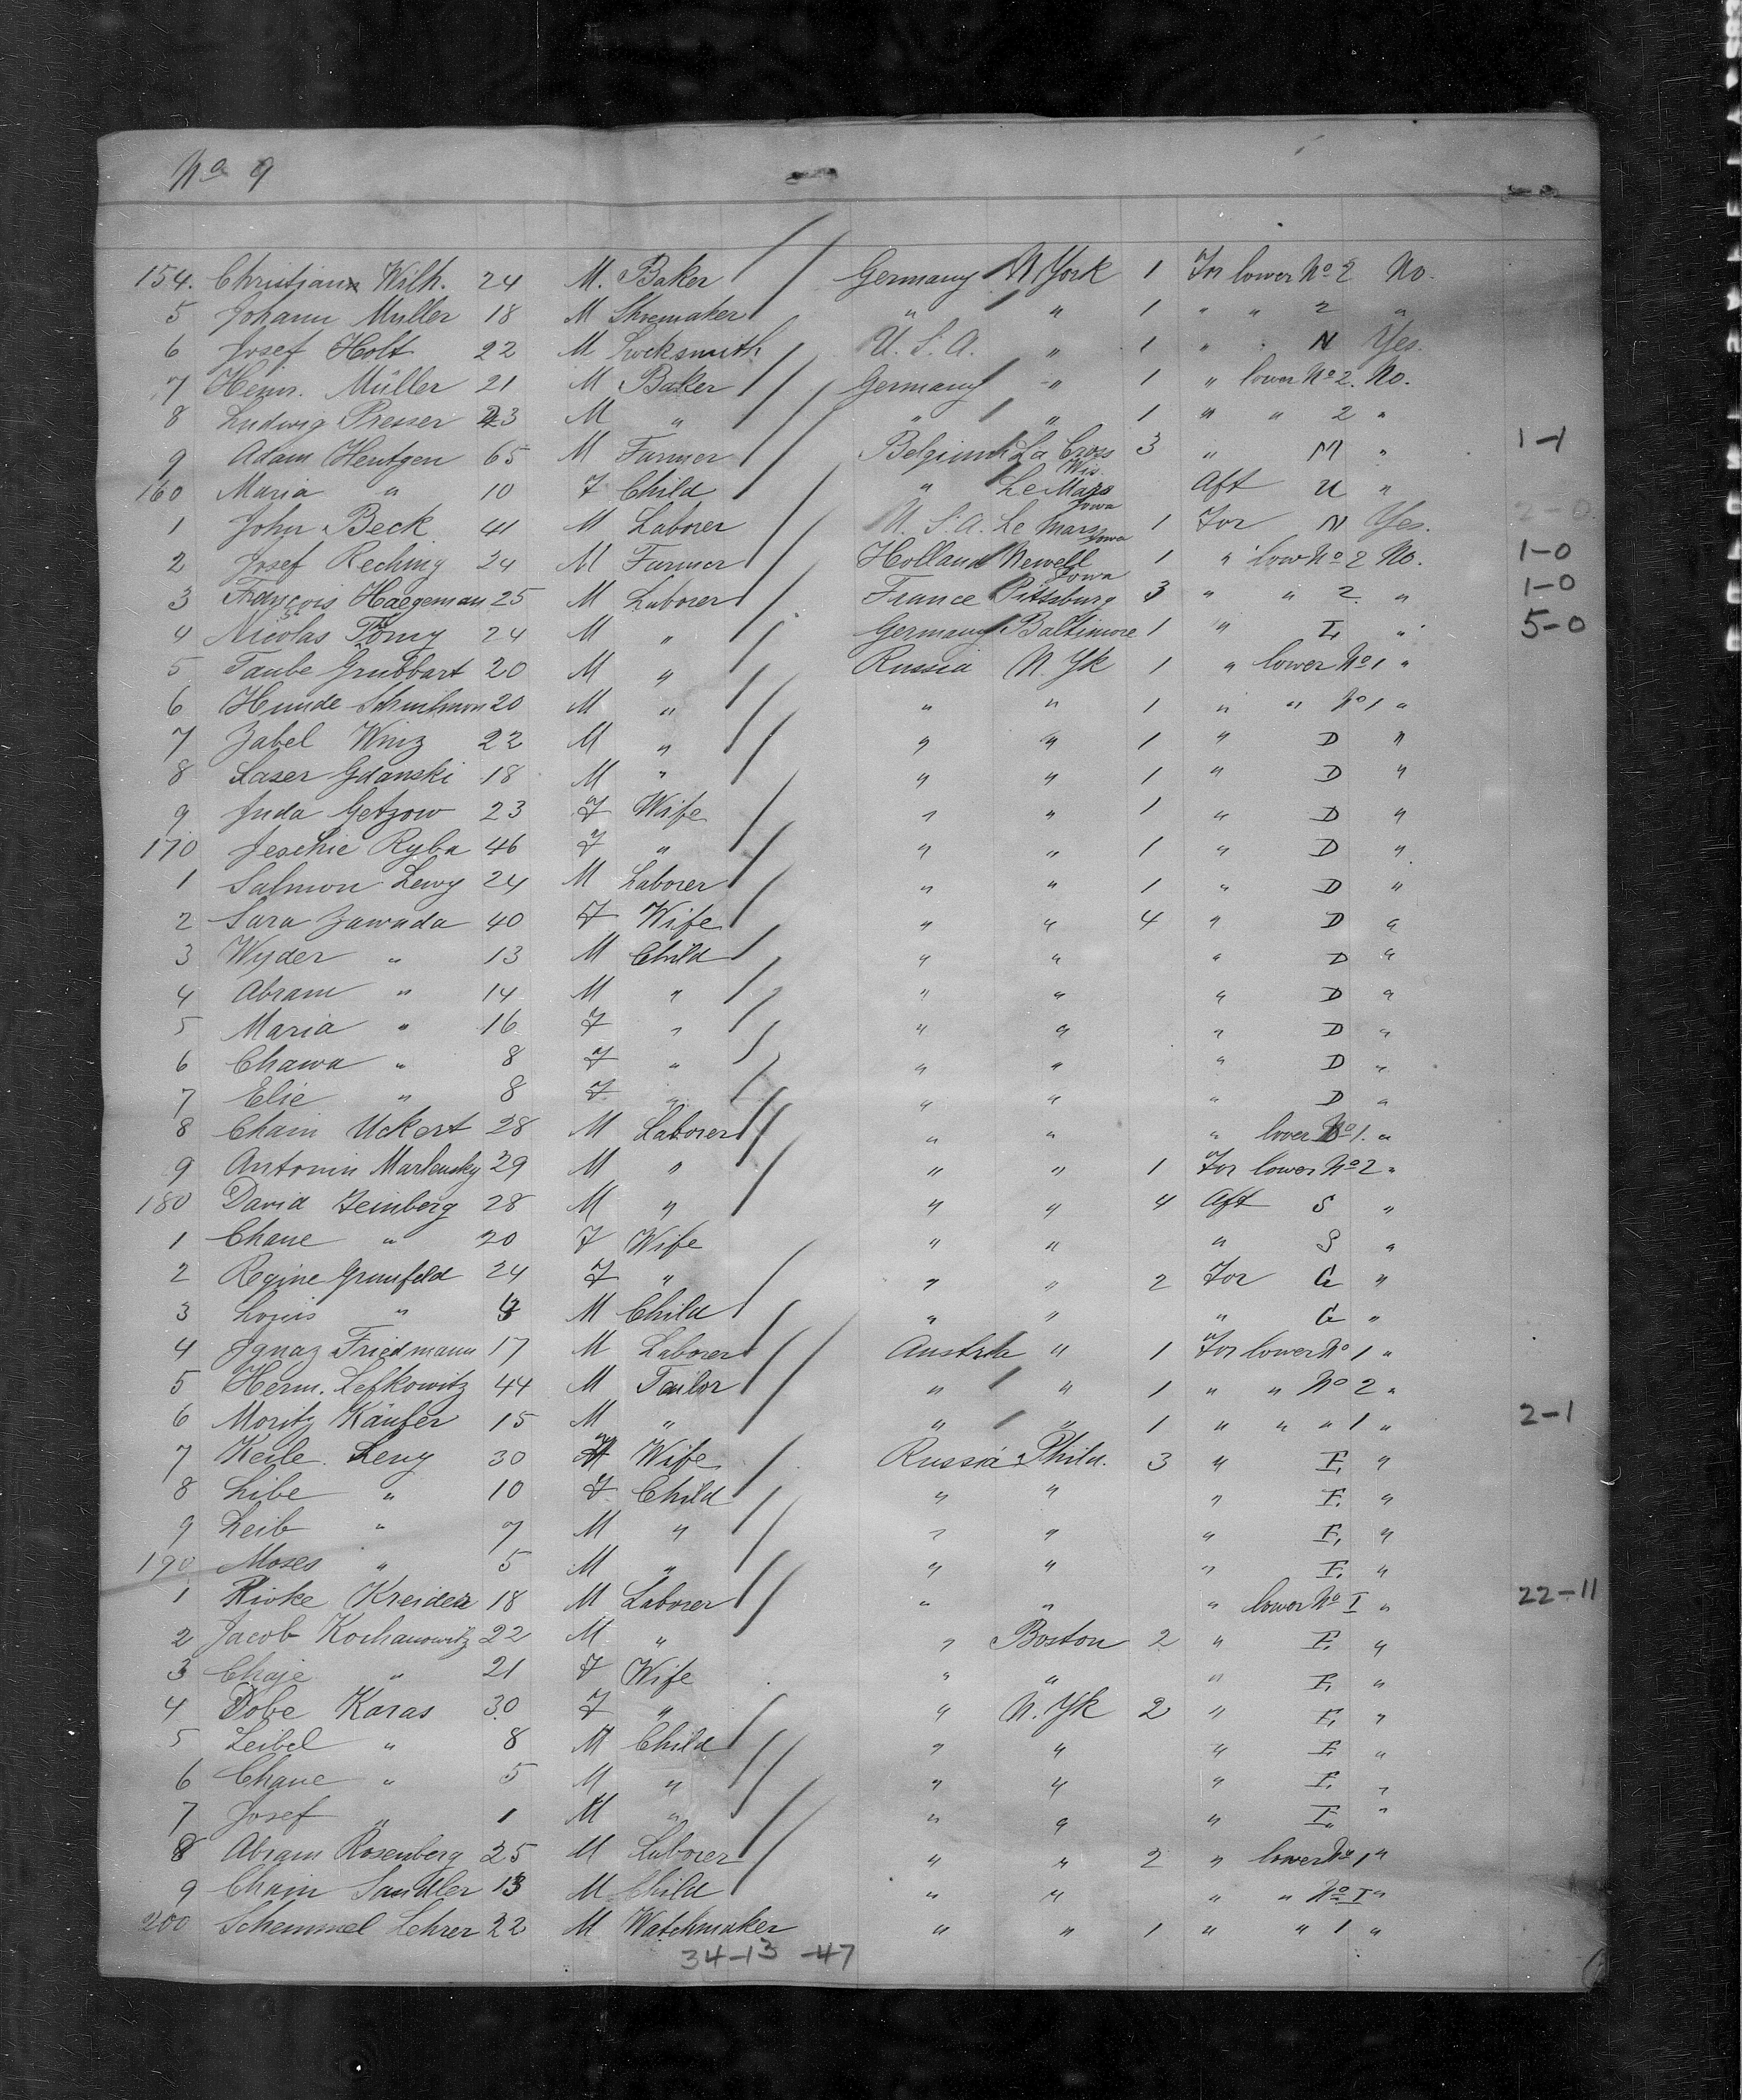 No 9
154. Christian Wilh. 24 M. Baker Germany N. York 1 For lower No 2 No.
5 Johann Muller 18 M Shoemaker " " 1 " " 2 "
6 Josef Holt 22 M Locksmith U. S. A. " 1 " " N Yes.
7 Heinr. Müller 21 M Baker Germany " 1 " lower No 2. No.
8 Ludwig Presser 23 M " " " 1 " " 2 "
9 Adam Hentgen 65 M Farmer Belgium La Cross Wis. 3 " M " 1-1
160 Maria " 10 F Child " Le Mars Iowa Aft U "
1 John Beck 41 M Laborer U. S. A. Le Mars Iowa 1 For N Yes. 2-0
2 Josef Reching 24 M Farmer Holland Newell Iowa 1 " low No 2 No. 1-0
3 François Haegeman 25 M Laborer France Pittsburg 3 " " 2. " 1-0
4 Nicolas Tömy 24 M " Germany Baltimore 1 " I, " 5-0
5 Taube Grubbart 20 M " Russia N. Yk 1 " lower No 1 "
6 Hunde 20 M " " " 1 " " No 1 "
7 Zabel Winz 22 M " " " 1 " D "
8 Laser Gdanski 18 M " " " 1 " D "
9 Juda Getzow 23 F Wife " " 1 " D "
170 Jeschie Ryba 46 F " " " 1 " D "
1 Salmon Lewy 24 M Laborer " " 1 " D "
2 Sara Zawada 40 F Wife " " 4 " D "
3 Wyder " 13 M Child " " " D "
4 Abram " 14 M " " " " D "
5 Maria " 16 F " " " " D "
6 Chawa " 8 F " " " " D "
7 Elie " 8 F " " " " D "
8 Chain Uckert 28 M Laborer " " " lower No 1. "
9 Antonin Marlensky 29 M " " " 1 For lower No 2 "
180 David Zeinberg 28 M " " " 4 Aft S "
1 Chane " 20 F Wife " " " S "
2 Regine Grunfeld 24 F " " " 2 For G "
3 Louis " M Child " " " G "
4 Ignaz Friedmann 17 M Laborer Austria " 1 For lower No 1 "
5 Herm. Lefkowitz 44 M Tailor " " 1 " " No 2 "
6 Moritz Käufer 15 M " " " 1 " " " 1 " 2-1
7 Keile Levy 30 F Wife Russia Phila. 3 " E, "
8 Libe " 10 F Child " " " E. "
9 Leib " 7 M " " " " E, "
190 Moses " 5 M " " " " E. "
1 Rivke Kreider 18 M Laborer " " " lower No I " 22-11
2 Jacob Kochanowitz 22 M " " Boston 2 " E. "
3 Chaje " 21 F Wife " " " E, "
4 Dobe Karas 30 F " " N. Yk 2 " E, "
5 Leibel " 8 M Child " " " E "
6 Chane " 5 M " " " " E, "
7 Josef " 1 M " " " " E. "
8 Abram Rosenberg 25 M Laborer " " 2 " lower No 1 "
9 Chain Sandler 13 M Child " " " " No I "
200 Schemmel Lehrer 22 M Watchmaker " " 1 " " 1 "
34-13 -47